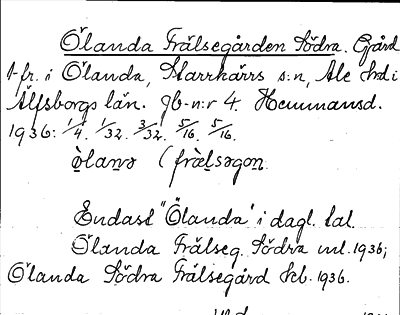 Ölanda Frälsegården Södra. Gård
1 fr. i Ölanda, Starrkärrs s:n, Ale hd i
Älfsborgs län. Jb-n:r 4. Hemmansd.
1936: 1/4. 1/32. 3/32. 5/16. 5/16.
Endast "Ölanda" i dagl. tal.
Ölanda Frälseg. Södra ml. 1936;
Ölanda Södra Frälsegård skb. 1936.